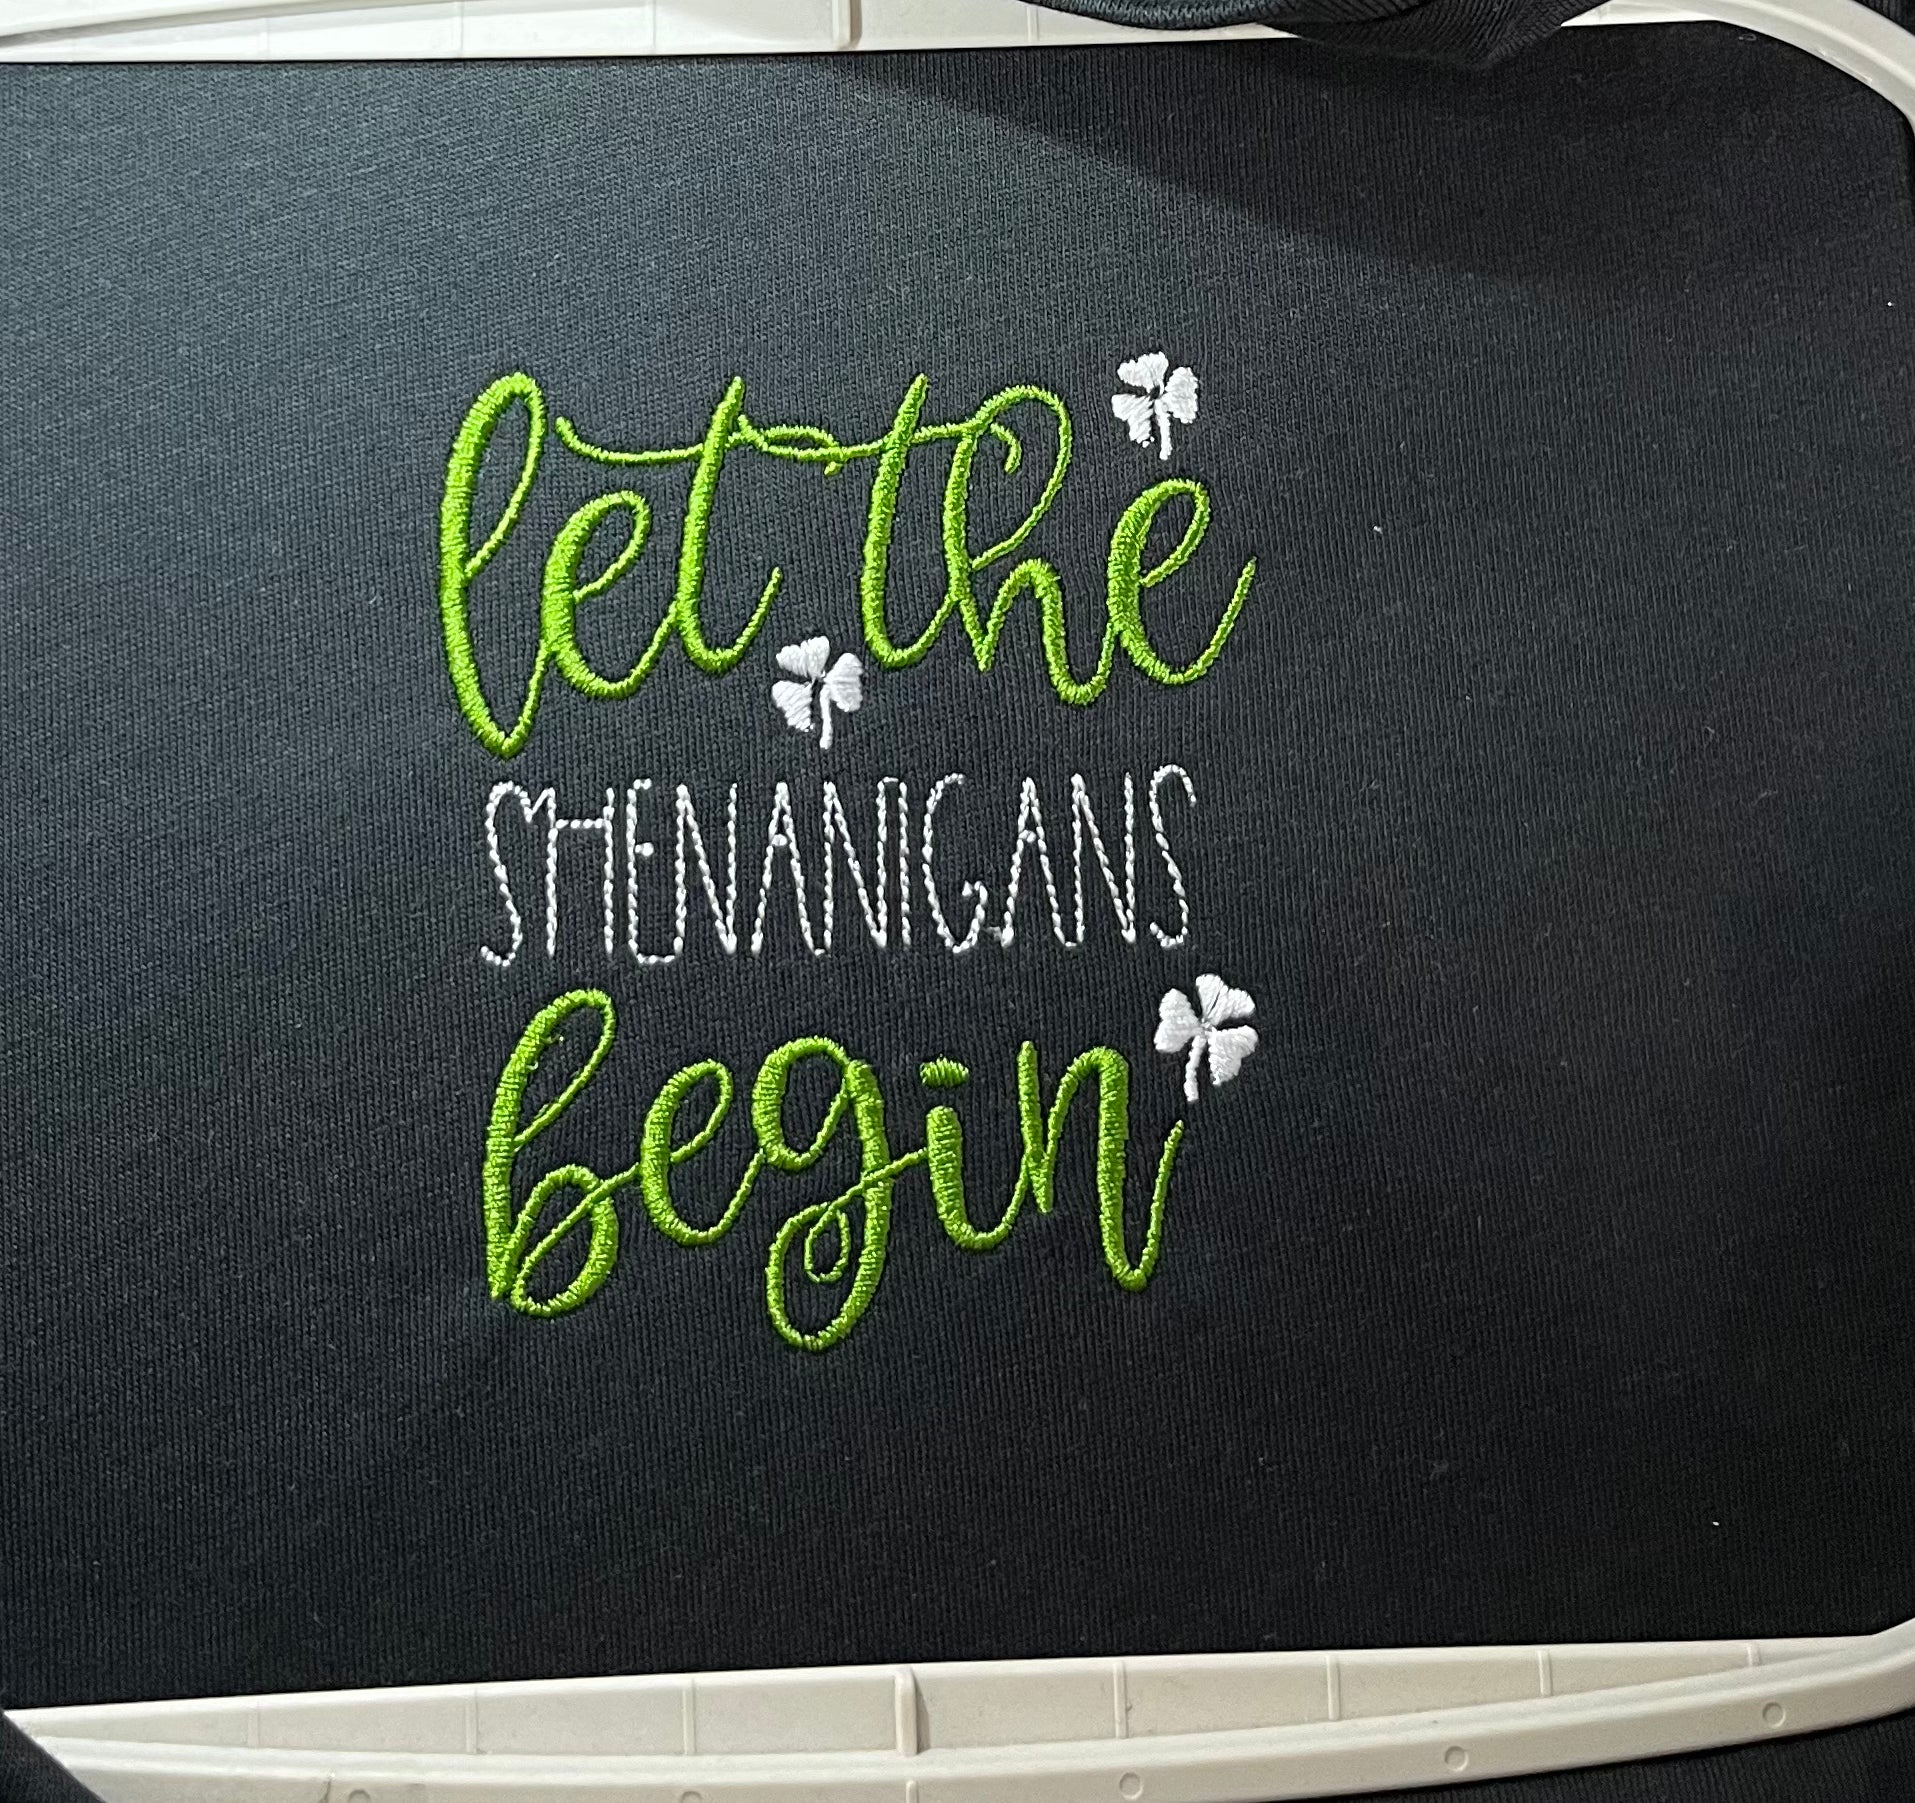 let the
SHENANIGANS
begin